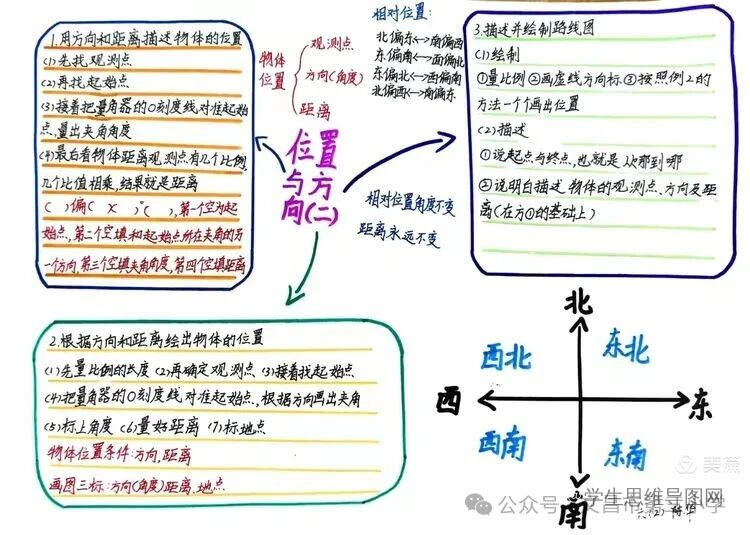 1.用方向和距离描述物体的位置
(1)先找观测点
(2)再找起始点
(3)接着把量角器的0刻度线对准起始
点,量出夹角角度
(4)最后看物体距离观测点有几个比例,
几个比值相乘,结果就是距离
( )偏( X )°( ),第一个空为起
始点,第二个空填和起始点所在夹角的另
一个方向,第三个空填夹角角度,第四个空填距离
物体
位置
观测点
方向(角度)
距离
相对位置:
北偏东<->南偏西
东偏南<->西偏北
东偏北<->西偏南
北偏西<->南偏东
位置
与方
向(二)
相对位置角度不变
距离永远不变
3.描述并绘制路线图
(1)绘制
①量比例②画虚线方向标③按照例2的
方法一个个画出位置
(2)描述
①说起点与终点,也就是从那到哪
②说明白描述物体的观测点、方向及距
离(在方①的基础上)
2.根据方向和距离绘出物体的位置
(1)先量比例的长度 (2)再确定观测点 (3)接着找起始点
(4)把量角器的0刻度线对准起始点,根据方向画出夹角
(5)标上角度 (6)量好距离 (7)标地点
物体位置条件:方向,距离
画图三标:方向(角度)距离、地点
北
西北 东北
西 东
西南 东南
南
美篇
学生思维导图网
公众号